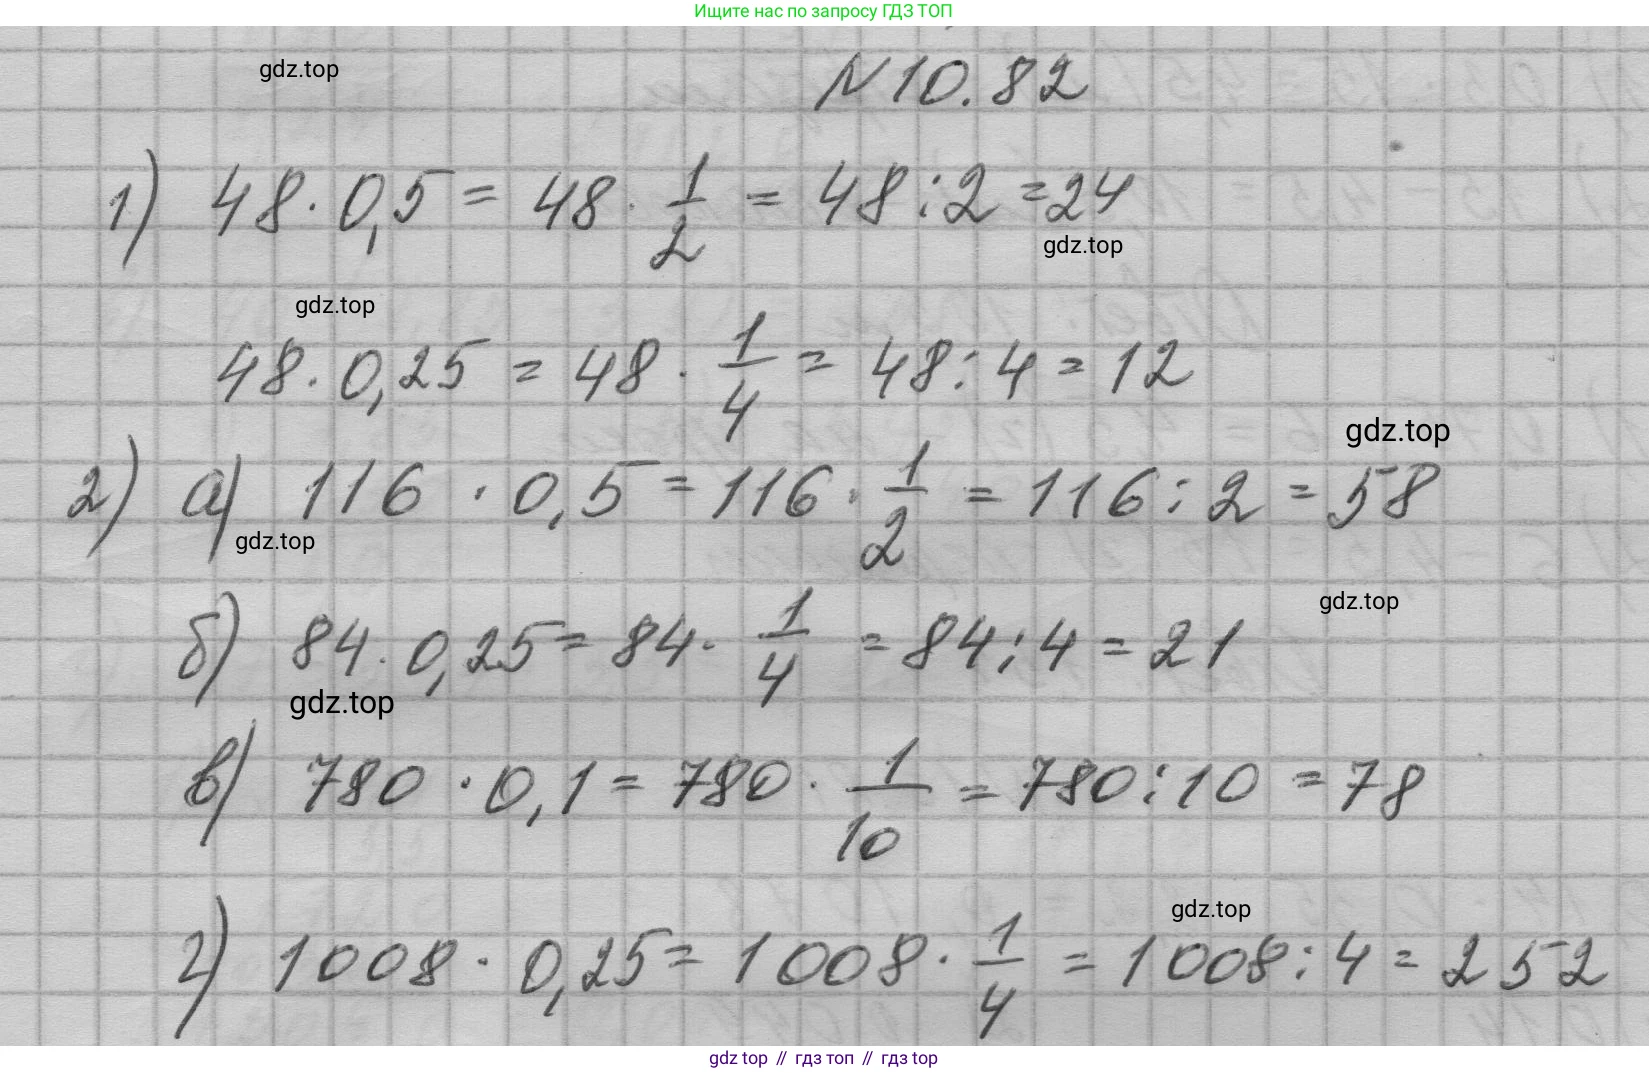 Ищите нас по запросу ГДЗ ТОП
gdz.top
N 10.82
1) 48 · 0,5 = 48 · 1/2 = 48 : 2 = 24
gdz.top
gdz.top
48 · 0,25 = 48 · 1/4 = 48 : 4 = 12
gdz.top
2) а) 116 · 0,5 = 116 · 1/2 = 116 : 2 = 58
gdz.top
gdz.top
б) 84 · 0,25 = 84 · 1/4 = 84 : 4 = 21
gdz.top
в) 780 · 0,1 = 780 · 1/10 = 780 : 10 = 78
gdz.top
г) 1008 · 0,25 = 1008 · 1/4 = 1008 : 4 = 252
gdz top // гдз топ // gdz top